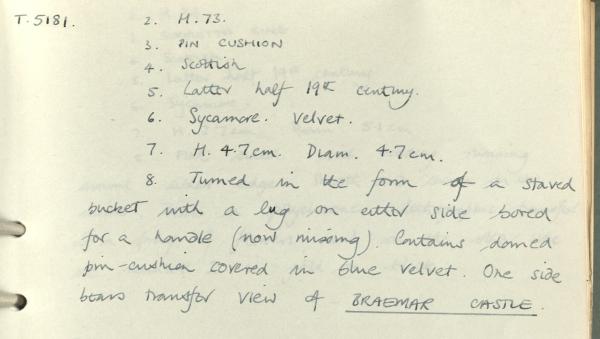 T.5181. 2. H.73.
3. PIN CUSHION
4. Scottish
5. Latter half 19th century.
6. Sycamore. Velvet.
7. H. 4.7cm. Diam. 4.7cm.
8. Turned in the form of a staved
bucket with a lug on either side bored
for a handle (now missing). Contains domed
pin-cushion covered in blue velvet. One side
bears transfer view of BRAEMAR CASTLE.